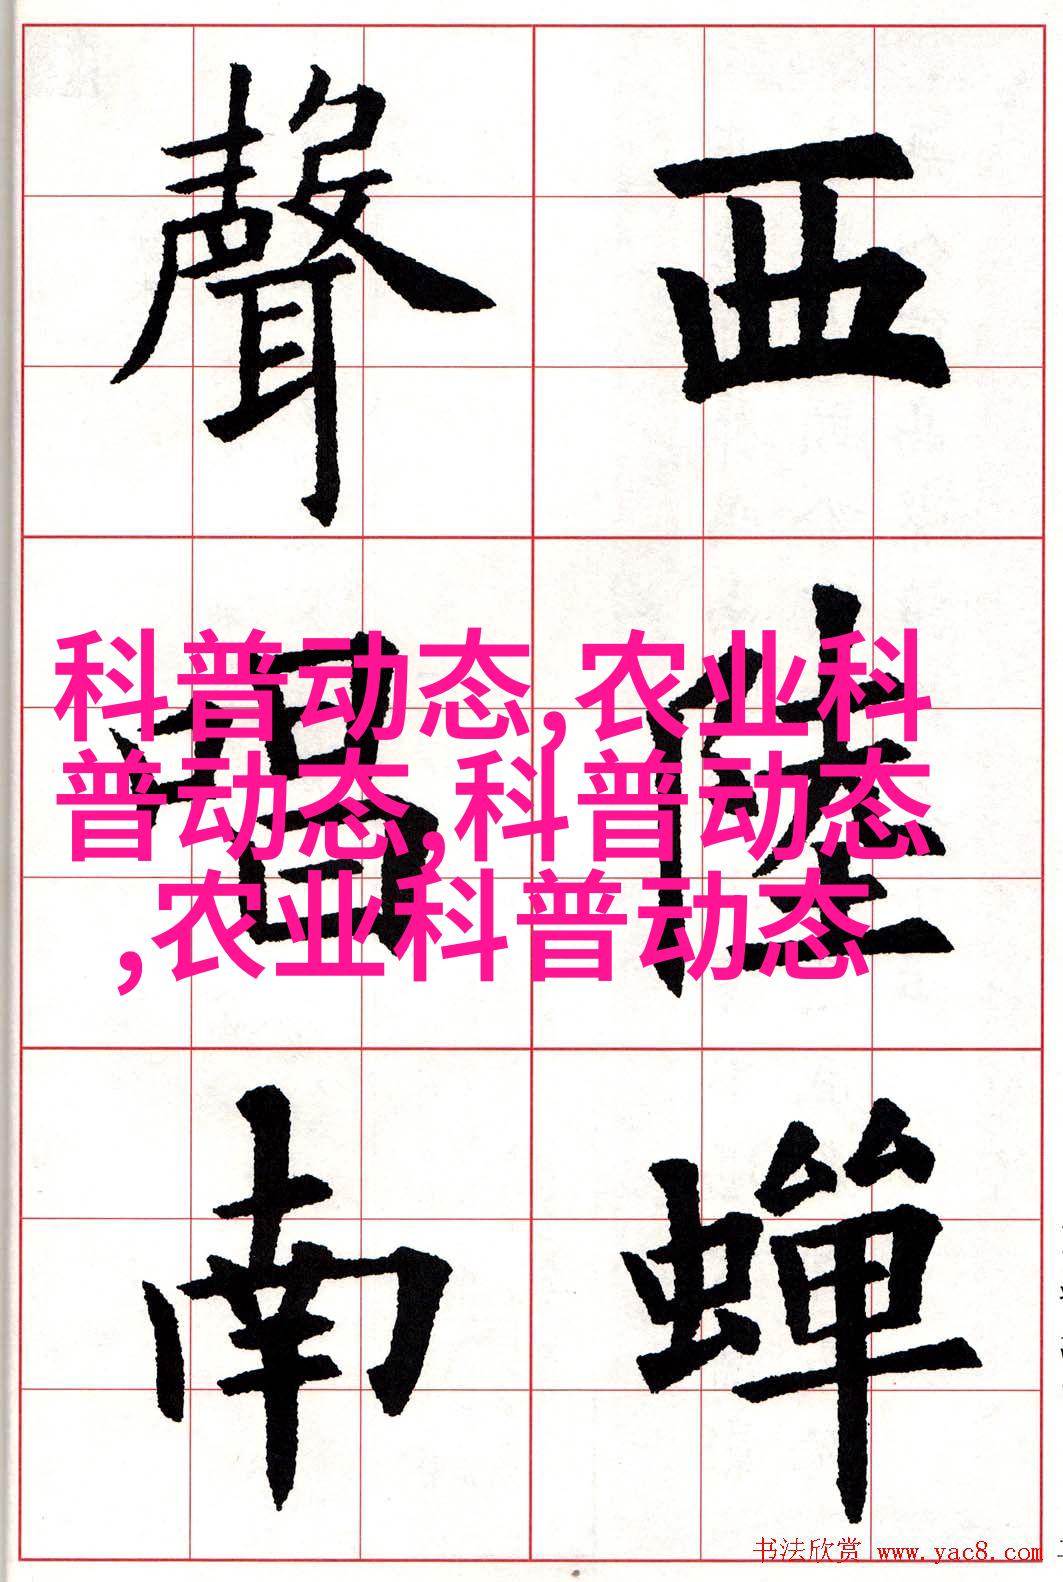 西陸蟬
聲唱南
科普动态,农业科
普动态,科普动态
,农业科普动态
书法欣赏 www.yac8.com